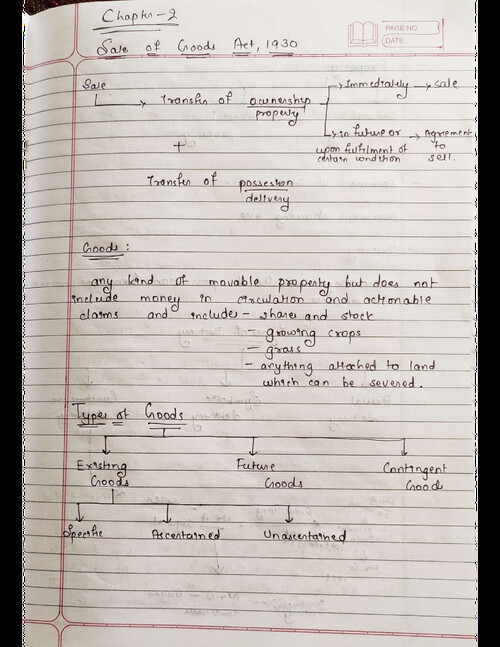 Chapter-2
Sale of Goods Act, 1930
PAGE NO.
DATE
Sale
Transfer of ownership
property
Immediately → sale
in future or → Agreement
upon fulfilment of to
certain condition sell.
+
Transfer of possession
delivery
Goods:
any kind of movable property but does not
include money in circulation and actionable
claims and include - shares and stock
- growing crops
- grass
- anything attached to land
which can be severed.
Types of Goods
Existing Future Contingent
Goods Goods Goods
Specific Ascertained Unascertained